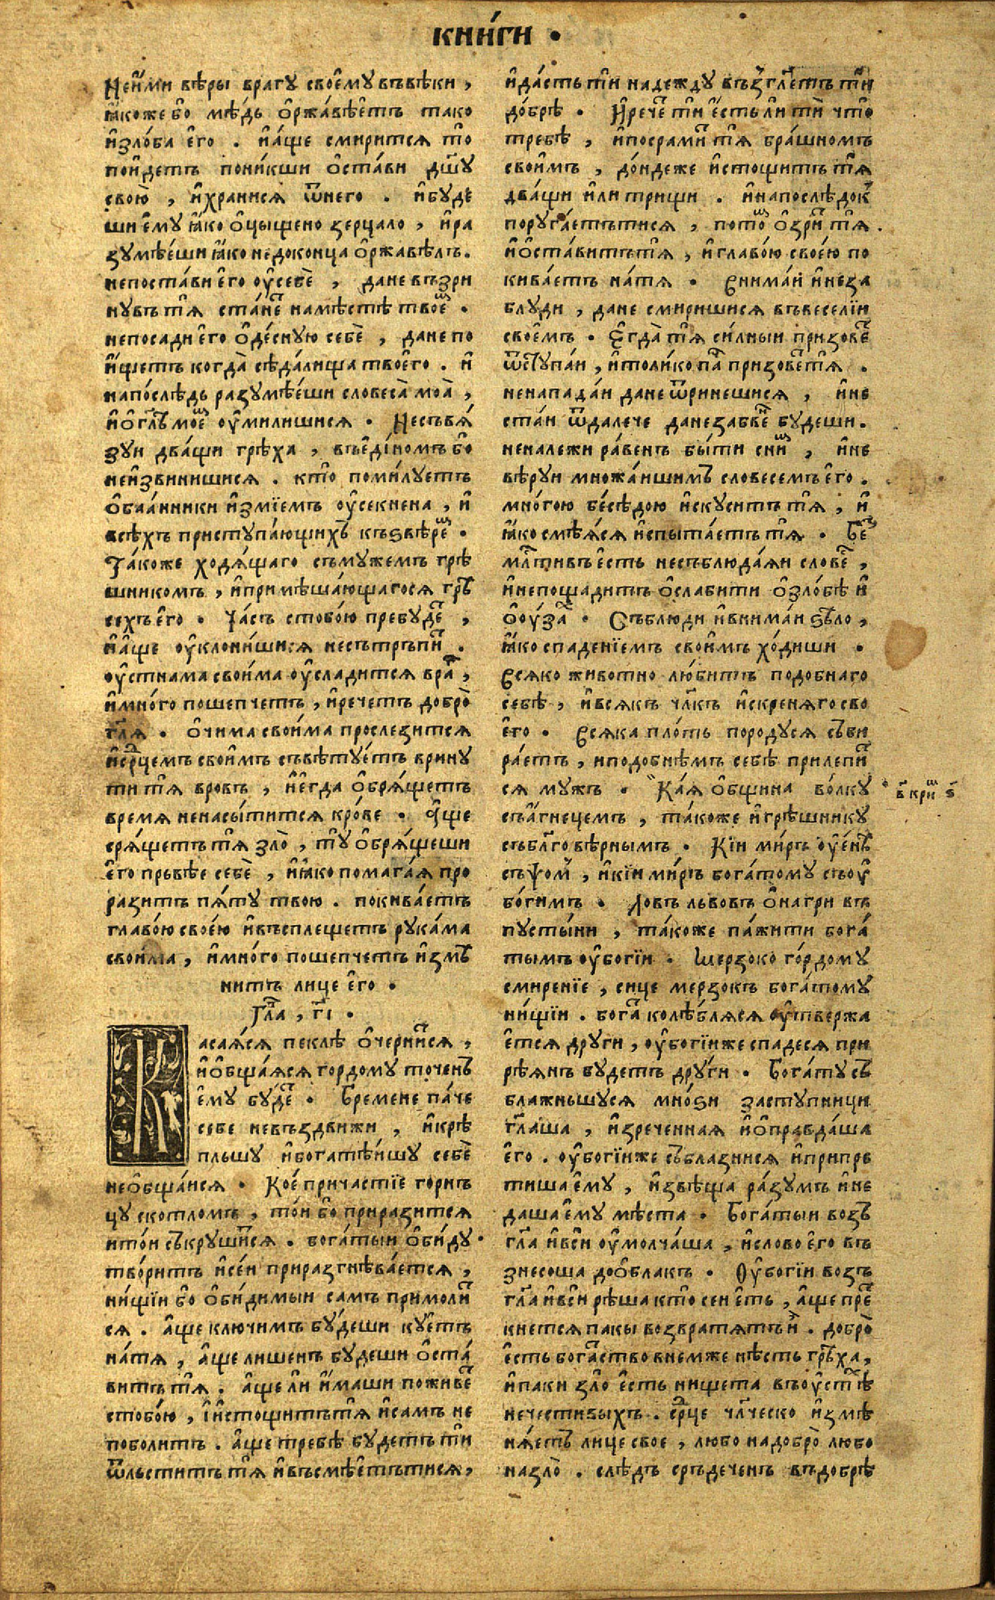 кни́ги ·
Неи҆́ми вѣ́ры врагу своемꙋ въвѣ́ки ,
ꙗ҆́коже бо мѣ́дь ѻ҆ржа́вѣетъ тако
и҆зло́ба є҆го . и҆а҆́ще смирится то
пои́детъ пони́кши ѻ҆ста́ви дш҃у
свою̀ , и҆храни́ся ѿнего . и҆буде
ши є҆му ꙗ҆́ко ѻ҆цыщено зерцало , и҆ра
зумѣ́еши ꙗ҆́ко недоконца ѻ҆ржавѣлъ .
непоста́ви є҆го оу҆себѐ , дане въ́зри
нувъ тѧ̀ ста́нет намѣстѣ твоем .
непосади є҆го ѻ҆де́сную себѐ , дане по
и҆́щетъ когда̀ сѣда́лища твоего . и҆
напо́слѣдь разумѣ́еши словеса̀ моа̀ ,
и҆ѻ҆гл҃ъ мое оу҆милишися . Несъвя́
зуи два́щи грѣха , въе҆ди́номъ бо
неи҆звинишися . кто поми́луетъ
ѻ҆баа́нники и҆змі́емъ оу҆секнена , и҆
всѣ́хъ приступа́ющихъ къѕвѣрем .
Та́коже ходя́щаго съмужемъ грѣ
шникомъ , и҆примѣша́ющагося грѣ
сехъ є҆го . Ча́съ стобо́ю пребуде ,
и҆а҆́ще оу҆клони́шися несътръпи .
оу҆стнама свои́ма оу҆слади́тся враг ,
и҆мно́го пошепчетъ , и҆речетъ добрѐ
гл҃я . ѻ҆чима свои́ма прослези́тся
и҆срдцемъ свои́мъ съвѣту́етъ врину
ти тѧ̀ вровъ , и҆е҆гда ѻ҆бря́щетъ
время ненасы́тится кро́ве . А҆ще
сря́щетъ тѧ̀ зло̀ , ту̀ ѻ҆бря́щеши
є҆го прьвѣе себѐ , и҆ꙗ҆́ко помага́я про
рази́тъ пя́ту твою . покива́етъ
главо́ю своею и҆въспле́щетъ рука́ма
свои́ма , и҆мно́го поше́пчетъ и҆змѣ
нитъ лице є҆го .
Глава , гі .
Каса́яся пеклѣ̀ ѻ҆черни́тся ,
и҆ѻ҆бща́яся гордому точенъ
є҆му буде . Бремене па́че
себе невъздвижи , и҆крѣ
пльшу и҆богатѣ́ишу себѐ
неѻ҆бща́ися . Кое́ прича́стїе горнъ
цу скотломъ , то́и бо приразится
ито́и съкруши́тся . бога́тыи ѻ҆би́ду
твори́тъ и҆се́и приразгнѣва́ется ,
ни́щїи бо ѻ҆би́димыи самъ примоли
ся . а҆́ще ключимъ бу́деши куетъ
на́тя , а҆́ще лишенъ бу́деши ѻ҆ста́
витъ тѧ̀ . а҆́ще ли и҆́маши поживе
стобо́ю , и҆и҆стощитъ тѧ̀ и҆самъ не
поболитъ . а҆́ще требѣ̀ будетъ ти
ѿльститъ тѧ̀ и҆въсмѣе́тътися ,
и҆да́сть ти надежду въгл҃етъ ти
до́брѣ . И҆рече ти є҆́сть ли ти что
требѣ , и҆посрами тя бра́шномъ
свои́мъ , до́ндеже и҆стощи́тъ тѧ̀
два́щи и҆ли трищи . и҆напослѣ́док
поруга́етътися , потом ѻ҆зри тя .
и҆ѻ҆ста́витътя , и҆главо́ю свое́ю по
кива́етъ натя . Внима́и и҆неза
блуди , дане смири́шися въвесе́лїи
свое́мъ . Є҆гда̀ тя си́лныи призове
ѿступа́и , и҆толи́ко паче призове́тътя .
ненапада́и дане ѿри́нешися , и҆не
ста́и ѿдалече дане забвен будеши .
неналежи ра́венъ бы́ти сним , и҆не
вѣруи множа́ишимъ словесемъ є҆го .
мно́гою бе́сѣдою и҆скуси́тъ тя , и҆
ꙗ҆́ко смѣ́яся и҆спыта́етъ тя . Без
млтивъ є҆сть несъблюда́яи словес ,
и҆непощади́тъ ѻ҆слабити ѻ҆зло́бѣ и҆
ѻ҆оу҆за . Съблюди и҆внима́и ѕѣло ,
ꙗ҆́ко спаденїемъ свои́мъ хо́диши .
Вся́ко живо́тно лю́битъ подо́бнаго
себѣ̀ , и҆вся́къ чл҃къ и҆́скреняго сво
є҆го . Вся́ка пло́ть породуся съби
ра́етъ , и҆подо́бнѣмъ себѣ̀ прилепи
ся мужъ . Ка́я ѻ҆бщина во́лку
съа҆́гнецемъ , та́коже и҆грѣ́шнику
събл҃говѣ́рнымъ . Кі́и ми́ръ оу҆е́нѣ
съѱом , и҆кі́и ми́ръ бога́тому съоу҆
бо́гимъ . Ловъ львовъ ѻ҆нагри въ
пусты́ни , та́коже па́жити бога́
тымъ оу҆бо́гїи . Мерзоко го́рдому
смиренїе , си́це мерзокъ бога́тому
ни́щїи . бога́т колѣ́бляся оу҆твержа
ется други , оу҆бо́гїи же спадеся при
рѣянъ будетъ дру́ги . Бога́ту съ
блажньшуся мно́ѕи засту́пници
гл҃аша , и҆зре́ченная и҆ѻ҆правда́ша
є҆го . оу҆бо́гїи же съблазнися и҆припрѣ
тиша є҆му , и҆звѣща ра́зумъ и҆не
да́ша є҆му мѣ́ста . Бога́тыи возъ
гл҃а и҆вси́ оу҆молча́ша , и҆слово є҆го въ
знесоша доѻ҆блакъ . Оу҆бо́гїи возъ
гл҃а и҆вси рѣша кто сеи є҆сть , а҆́ще пре
кнется пакы возвратятъ и҆ . добро̀
є҆сть бога́тство внемже нѣсть грѣха ,
и҆паки зло є҆сть нищета въоу҆стѣ
нечести́выхъ . срдце чл҃ческо и҆змѣ
ня́етъ лице свое , любо надобро̀ любо
назло̀ . слѣ́дъ сръ́деченъ въдобрѣ
в кри ѕ